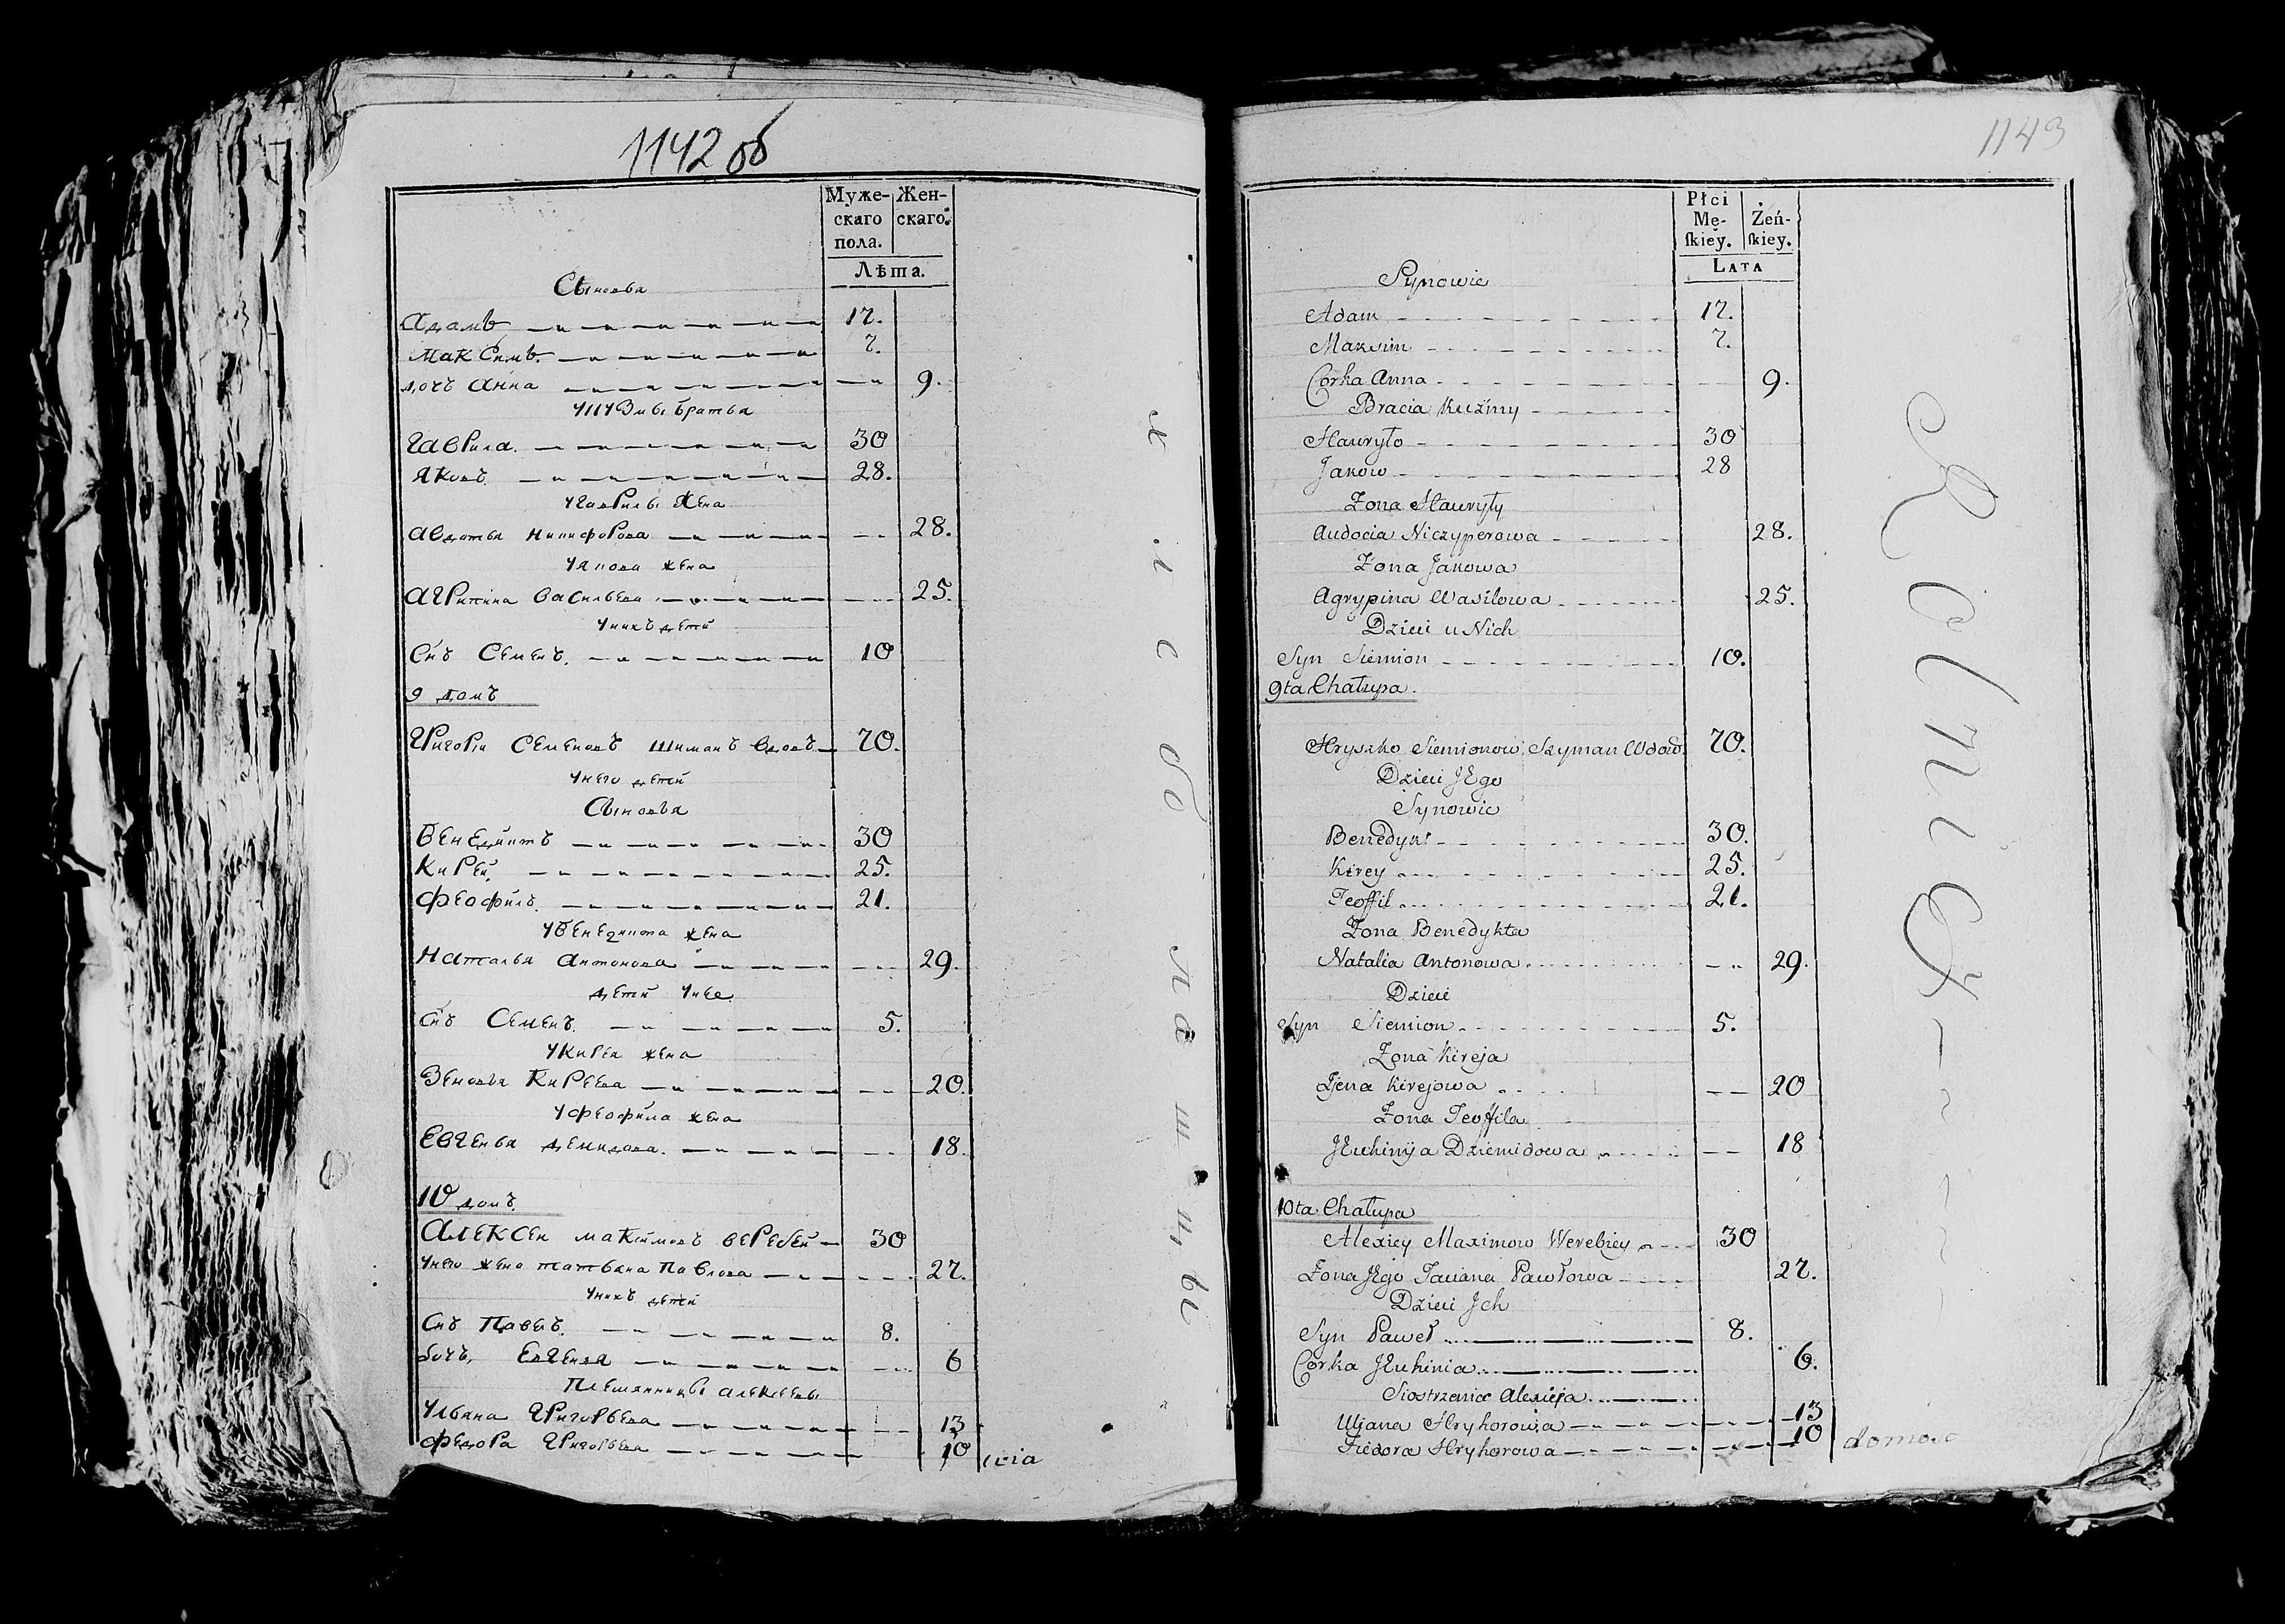 1142 об
Муже-
скаго
пола.
Жен-
скаго.
Лѣта.
Сынове
Адамъ 12.
Максимъ. 7.
дочь Анна 9.
у Кузмы братья
Гаврила. 30
Яковъ. 28.
у Гаврилы жена
Авдотья Никифорова 28.
у Якова жена
Агрипина Васильева 25.
у нихъ дети
Снъ Семенъ. 10
9 домъ
Григори Семеновъ Шиманъ вдовъ 70.
у него дети
Сыновья
Бенедиктъ 30
Кирей. 25.
Феофилъ. 21.
у Бенедикта жена
Наталья Антонова 29.
дети у нее.
Снъ Семенъ. 5.
у Кирея жена
Зеновья Киреева 20.
у Феофила жена
Евгенья Демидова. 18.
10 домъ.
Алексеи Максимовъ Веребей 30
у него жена Татьяна Павлова 27.
у нихъ дети
Снъ Павелъ. 8.
дочь, Евгения 6
племянницы Алексеевы
Ульяна Григорьева 13
Федора Григорьева 10
хлебопашцы
1143
Płci
Mę-
ſkiey.
Żeń-
ſkiey.
Lata
Synowie
Adam 12.
Maksim 7.
Corka Anna 9.
Bracia Kuźmy
Hauryło 30
Jakow 28
Żona Hauryły
Audocia Niczyperowa 28.
Żona Jakowa
Agrypina Wasilowa 25.
Dzieci u Nich
Syn Siemion 10.
9ta Chałupa.
Hryszko Siemionow Szyman Wdow. 70.
Dzieci JEgo
Synowie
Benedykt 30.
Kirey 25.
Teoffil 21.
Żona Benedykta
Natalia Antonowa 29.
Dzieci
Syn Siemion 5.
Żona Kireja
Zjena Kirejowa 20
Żona Teoffila
JEuhinija Dziemidowa 18
10ta Chałupa
Alexiey Maximow Werebiey 30
Żona JEgo Taciana Pawłowa 27.
Dzieci Jch
Syn Paweł 8.
Corka JEuhinia 6.
Siostrzenice Alexieja
Uljana Hryhorowa 13
Fiedora Hryhorowa 10
Rolnicy